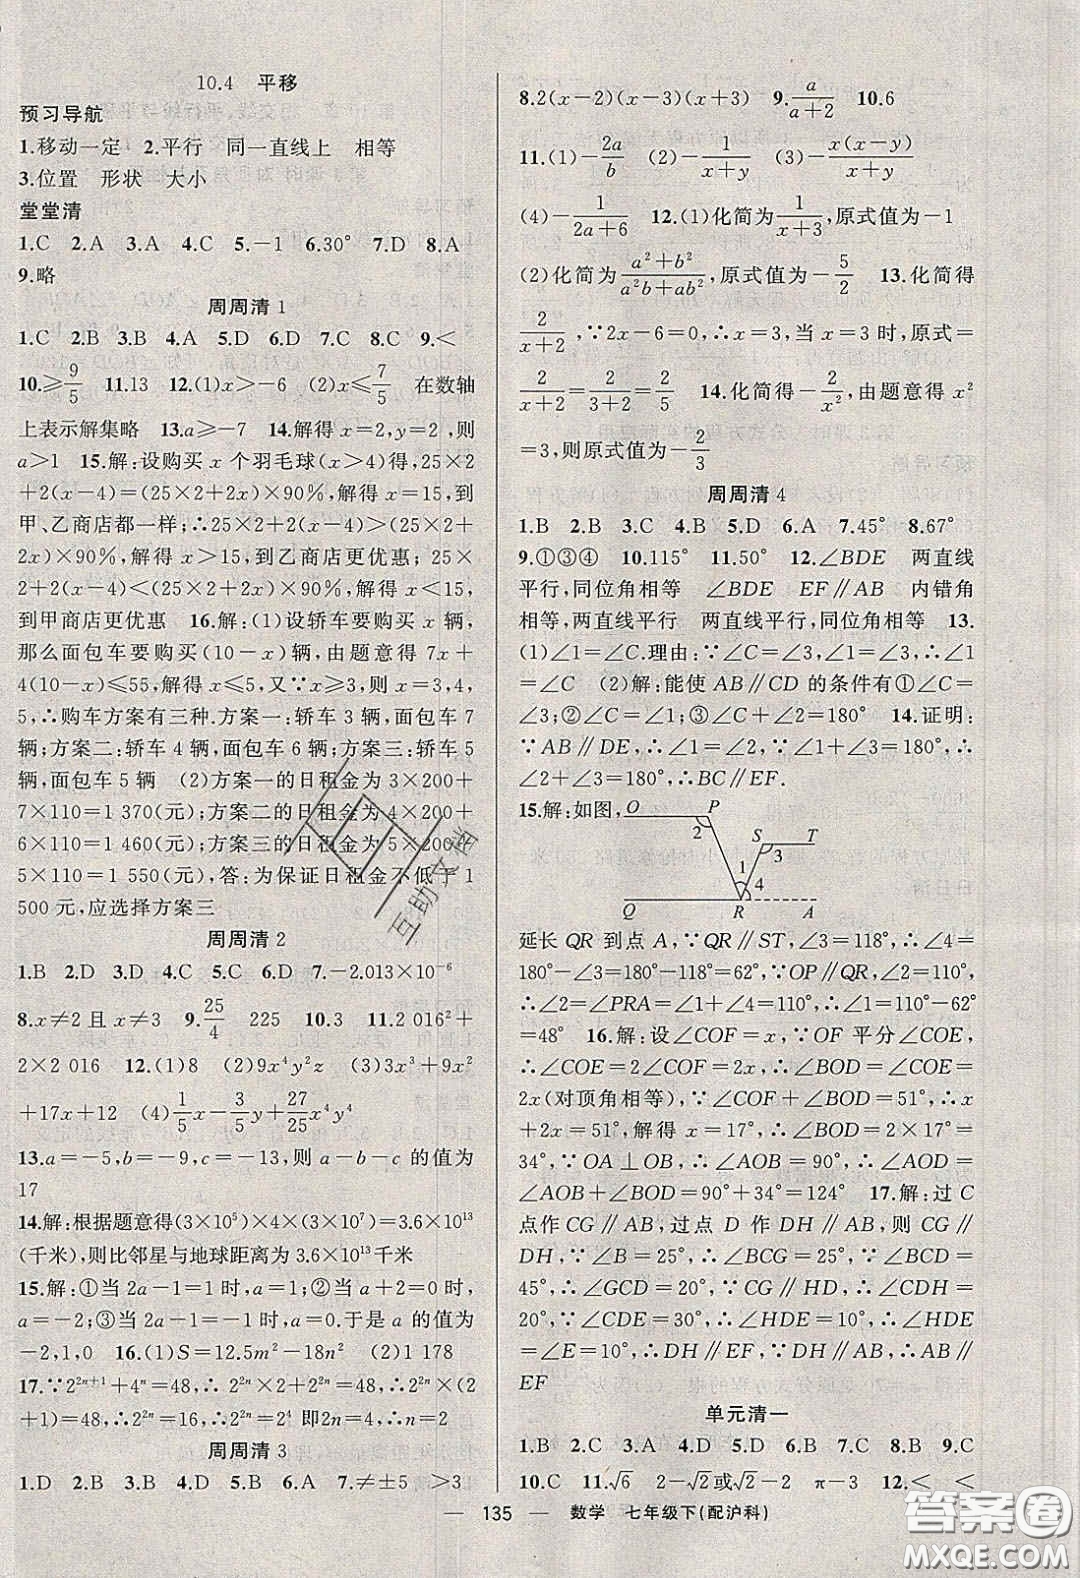 10.4 平移
预习导航
1.移动一定 2.平行 同一直线上 相等
3.位置 形状 大小
堂堂清
1.C 2.A 3.A 4.C 5.-1 6.30° 7.D 8.A
9.略
周周清1
1.C 2.B 3.B 4.A 5.D 6.D 7.C 8.C 9.<
10.≥9/5 11.13 12.(1)x>-6 (2)x≤7/5 在数轴
上表示解集略 13.a≥-7 14.解得 x=2,y=2,则
a>1 15.解:设购买 x 个羽毛球(x>4)得,25×2
+2(x-4)=(25×2+2x)×90%,解得 x=15,到
甲、乙商店都一样;∴25×2+2(x-4)>(25×2+
2x)×90%,解得 x>15,到乙商店更优惠;25×
2+2(x-4)<(25×2+2x)×90%,解得 x<15,
到甲商店更优惠 16.解:(1)设轿车要购买 x 辆,
那么面包车要购买(10-x)辆,由题意得 7x+
4(10-x)≤55,解得 x≤5,又∵x≥3,则 x=3,4,
5,∴购车方案有三种.方案一:轿车 3 辆,面包车 7
辆;方案二:轿车 4 辆,面包车 6 辆;方案三:轿车 5
辆,面包车 5 辆 (2)方案一的日租金为 3×200+
7×110=1 370(元);方案二的日租金为 4×200+
6×110=1 460(元);方案三的日租金为 5×200+
5×110=1 550(元),答:为保证日租金不低于 1
500 元,应选择方案三
周周清2
1.B 2.D 3.D 4.C 5.C 6.D 7.-2.013×10⁻⁶
8.x≠2 且 x≠3 9.25/4 225 10.3 11.2 016²+
2×2 016 12.(1)8 (2)9x⁴y²z (3)4x³+9x²
+17x+12 (4)1/5x-3/5y+27/25x⁴y⁴
13.a=-5,b=-9,c=-13,则 a-b-c 的值为
17
14.解:根据题意得(3×10⁵)×4×(3×10⁷)=3.6×10¹³
(千米),则比邻星与地球距离为 3.6×10¹³千米
15.解:①当 2a-1=1 时,a=1;②当 a+2=0 时,
a=-2;③当 2a-1=-1 时,a=0.于是 a 的值为
-2,1,0 16.(1)S=12.5m²-18n² (2)1 178
17.∵2²ⁿ⁺¹+4ⁿ=48,∴2²ⁿ×2+2²ⁿ=48,∴2²ⁿ×(2
+1)=48,∴2²ⁿ=16,∴2²ⁿ=2⁴ 即2n=4,∴n=2
周周清3
1.D 2.C 3.C 4.B 5.A 6.A 7.≠±5 >3
8.2(x-2)(x-3)(x+3) 9.a/(a+2) 10.6
11.(1)-2a/b (2)-1/(x+y) (3)-x(x-y)/(x+y)
(4)-1/(2a+6) 12.(1)化简为1/(x+3),原式值为-1
(2)化简为(a²+b²)/(a²b+ab²),原式值为-5/2 13.化简得
2/(x+2),∵2x-6=0,∴x=3,当 x=3 时,原式=
2/(x+2)=2/(3+2)=2/5 14.化简得-2/x²,由题意得 x²
=3,则原式值为-2/3
周周清4
1.B 2.B 3.C 4.B 5.D 6.A 7.45° 8.67°
9.①③④ 10.115° 11.50° 12.∠BDE 两直线
平行,同位角相等 ∠BDE EF∥AB 内错角
相等,两直线平行 两直线平行,同位角相等 13.
(1)∠1=∠C.理由:∵∠C=∠3,∠1=∠3,∴∠1
=∠C (2)解:能使 AB∥CD 的条件有①∠C=
∠3;②∠C=∠1;③∠C+∠2=180° 14.证明:
∵AB∥DE,∴∠1=∠2,∵∠1+∠3=180°,∴
∠2+∠3=180°,∴BC∥EF.
15.解:如图,
O P
2
S T
3
1
4
Q R A
延长 QR 到点 A,∵QR∥ST,∠3=118°,∴∠4=
180°-∠3=180°-118°=62°,∵OP∥QR,∠2=110°,
∴∠2=∠PRA=∠1+∠4=110°,∴∠1=110°-62°
=48° 16.解:设∠COF=x,∵OF 平分∠COE,
∴∠COE=2∠COF=2x,∴∠BOD=∠COE=
2x(对顶角相等),∵∠COF+∠BOD=51°,∴x
+2x=51°,解得 x=17°,∴∠BOD=2×17°=
34°,∵OA⊥OB,∴∠AOB=90°,∴∠AOD=
∠AOB+∠BOD=90°+34°=124° 17.解:过 C
点作 CG∥AB,过点 D 作 DH∥AB,则 CG∥
DH,∵∠B=25°,∴∠BCG=25°,∵∠BCD=
45°,∴∠GCD=20°,∵CG∥HD,∴∠CDH=
20°,∵∠CDE=30°,∴∠HDE=10°,∴∠HDE
=∠E=10°,∴DH∥EF,∵DH∥AB,∴AB∥
EF
单元清一
1.B 2.C 3.A 4.D 5.B 6.D 7.C 8.B 9.C
10.C 11.√6 2-√2或√2-2 π-3 12.< <
— 135 — 数学 七年级下(配沪科)
互助文档
答案圈
MXQE.COM